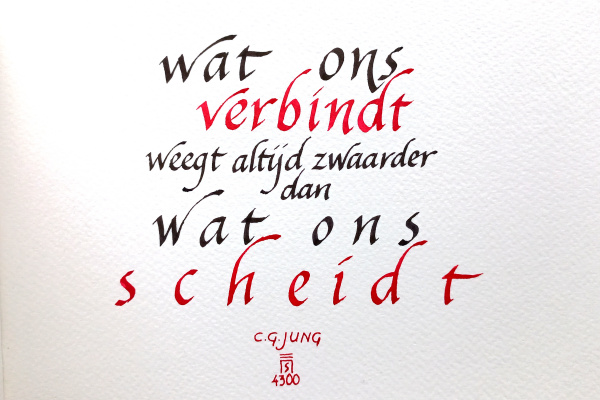 wat ons
verbindt
weegt altijd zwaarder
dan
wat ons
scheidt
C.G. JUNG
S
4300